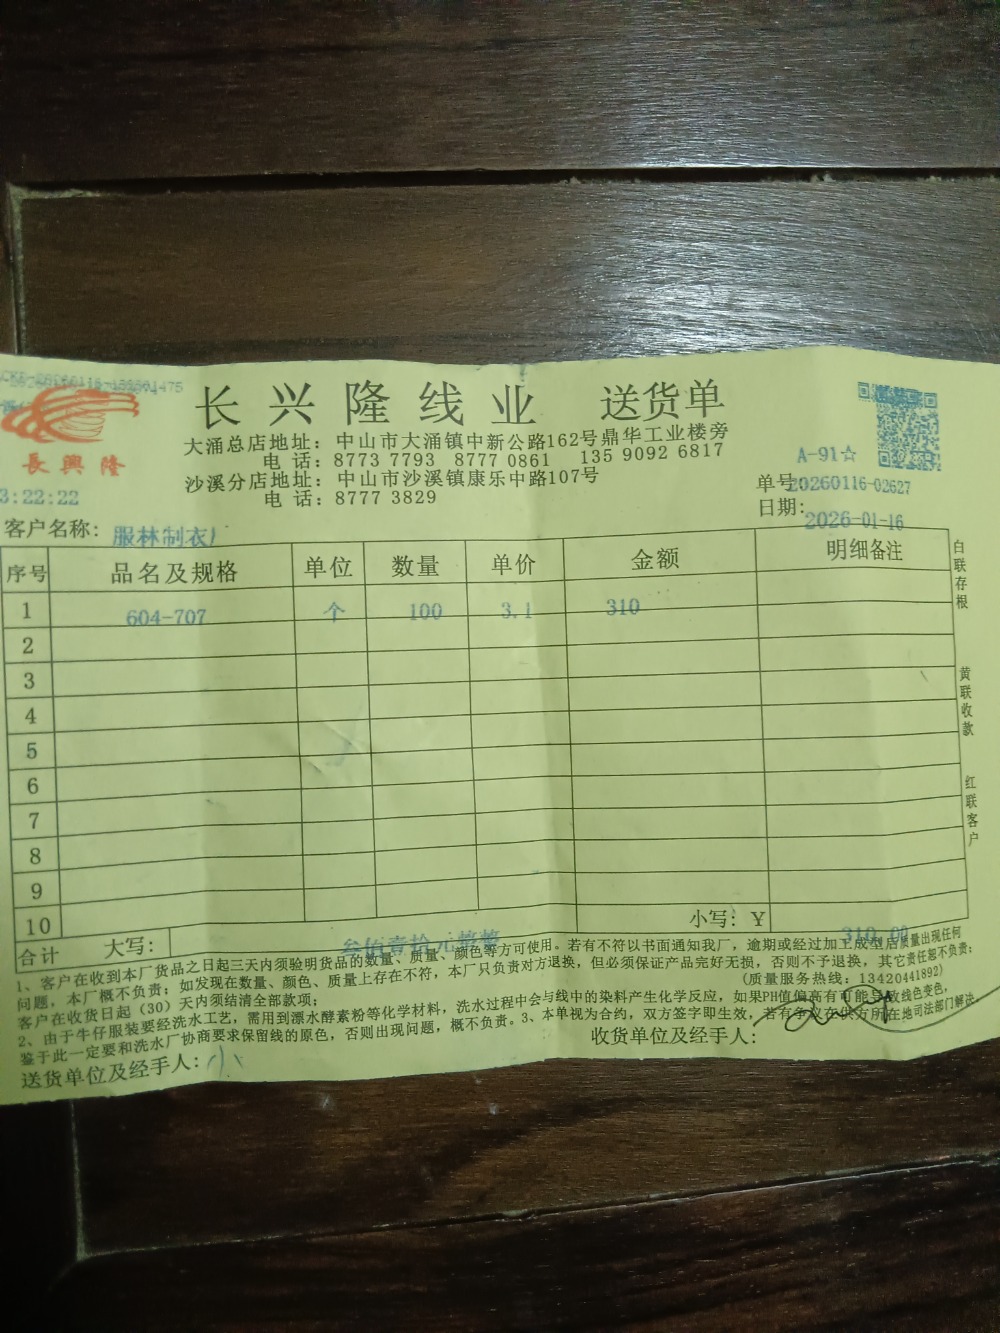 长兴隆线业 送货单
大涌总店地址：中山市大涌镇中新公路162号鼎华工业楼旁
电 话：8773 7793 8777 0861 135 9092 6817
沙溪分店地址：中山市沙溪镇康乐中路107号
电 话：8777 3829
長興隆
3:22:22
A-91☆
单号：20260116-02627
日期：2026-01-16
客户名称：服林制衣厂
序号 品名及规格 单位 数量 单价 金额 明细备注
1 604-707 个 100 3.1 310
2
3
4
5
6
7
8
9
10
合计 大写：叁佰壹拾元整 小写：¥ 310.00
白联存根 黄联收款 红联客户
1、客户在收到本厂货品之日起三天内须验明货品的数量、质量、颜色等方可使用。若有不符以书面通知我厂，逾期或经过加工成型后质量出现任何
问题，本厂概不负责；如发现在数量、颜色、质量上存在不符，本厂只负责对方退换，但必须保证产品完好无损，否则不予退换，其它责任恕不负责；
客户在收货日起（30）天内须结清全部款项； （质量服务热线：13420441892）
2、由于牛仔服装要经洗水工艺，需用到漂水酵素粉等化学材料，洗水过程中会与线中的染料产生化学反应，如果PH值偏高有可能导致线色变色，
鉴于此一定要和洗水厂协商要求保留线的原色，否则出现问题，概不负责。3、本单视为合约，双方签字即生效，若有争议在供方所在地司法部门解决
送货单位及经手人： 收货单位及经手人：